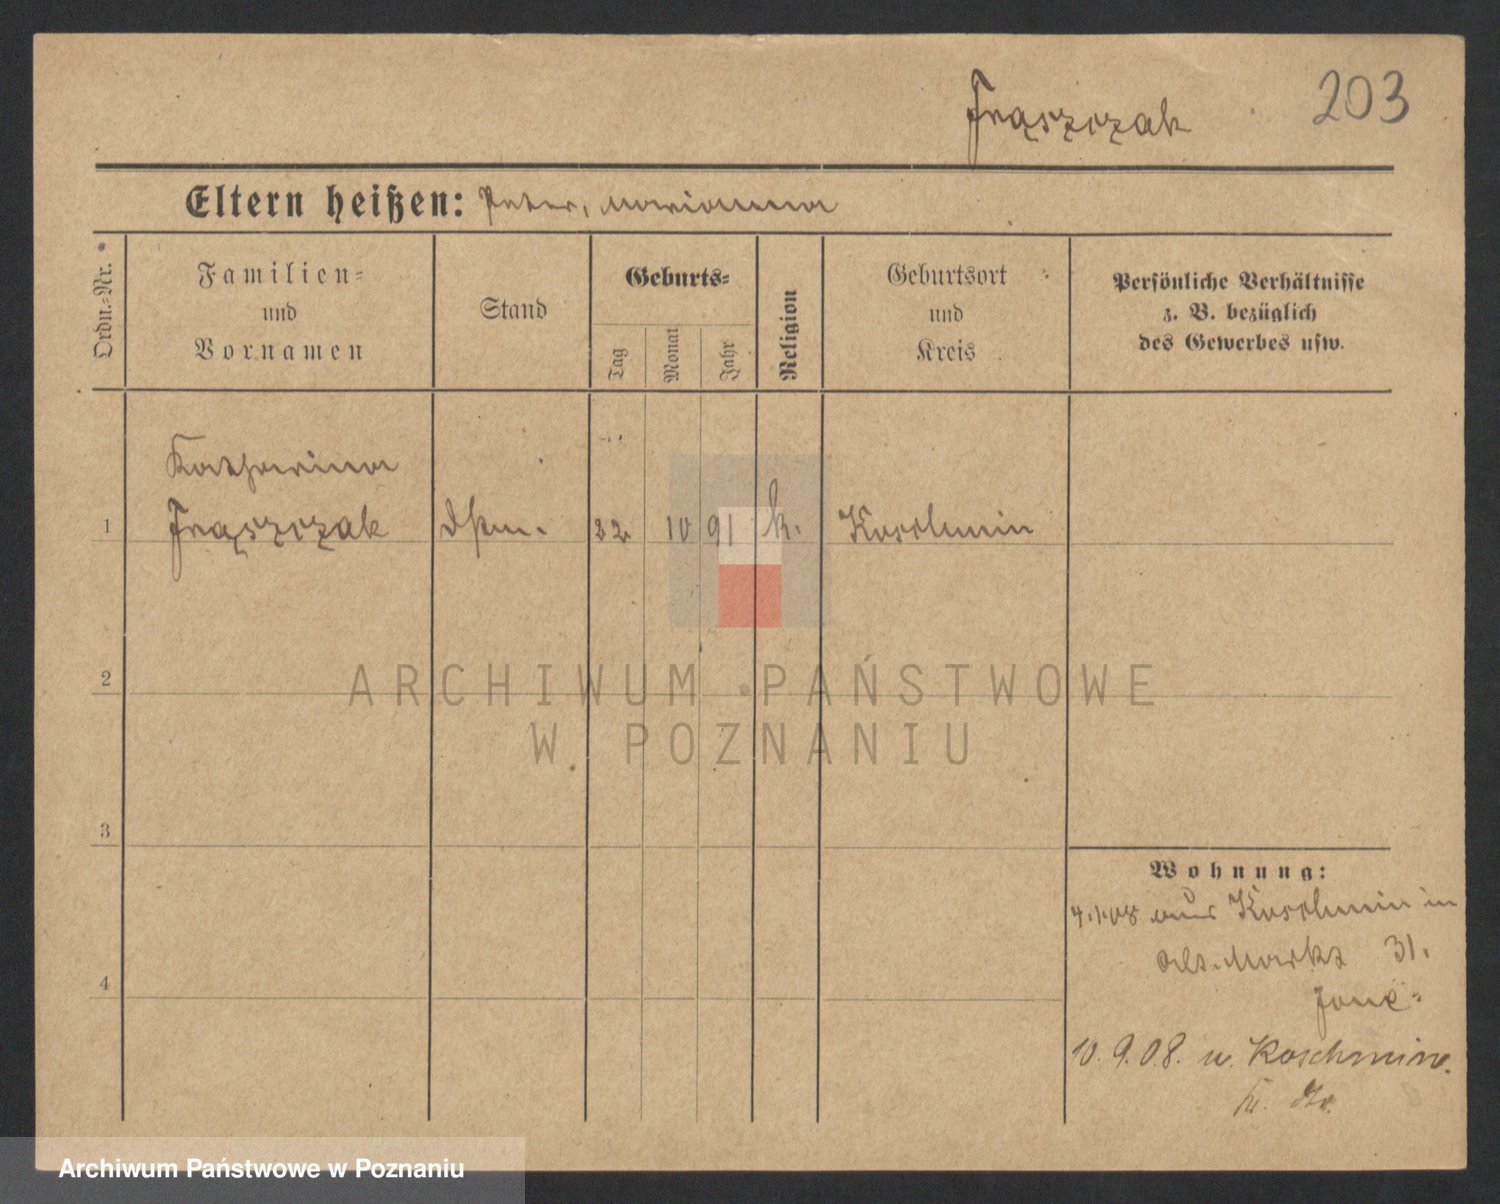 203
Frąszczak
Eltern heißen: Peter, Marianna
Ordn.-Nr.
Familien-
und
Vornamen
Stand
Geburts-
Tag
Monat
Jahr
Religion
Geburtsort
und
Kreis
Persönliche Verhältnisse
z. B. bezüglich
des Gewerbes usw.
Katharina
1 Frąszczak dstm. 22 10 91 k. Koschmin
2
3
4
Wohnung:
4.1.08 aus Koschmin in
Alt. Markt 31.
10.9.08. n. Koschmin.
ARCHIWUM PAŃSTWOWE
W POZNANIU
Archiwum Państwowe w Poznaniu